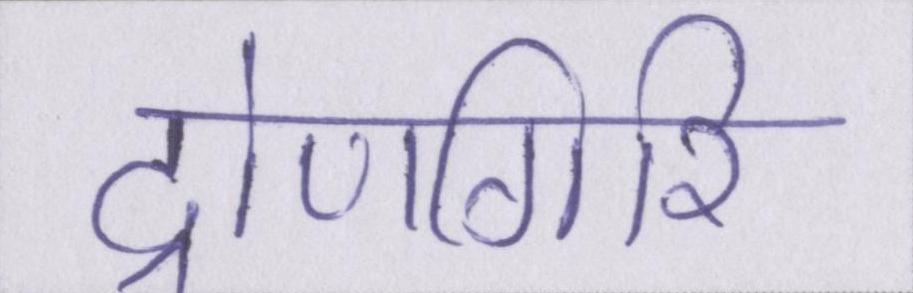 द्रोणगिरि